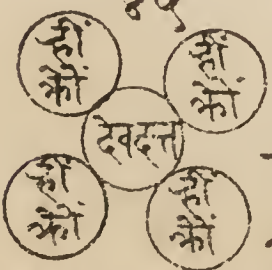 १९
ह्रीं
क्रों
ह्रीं
क्रों
देवदत्त
ह्रीं
क्रों
ह्रीं
क्रों